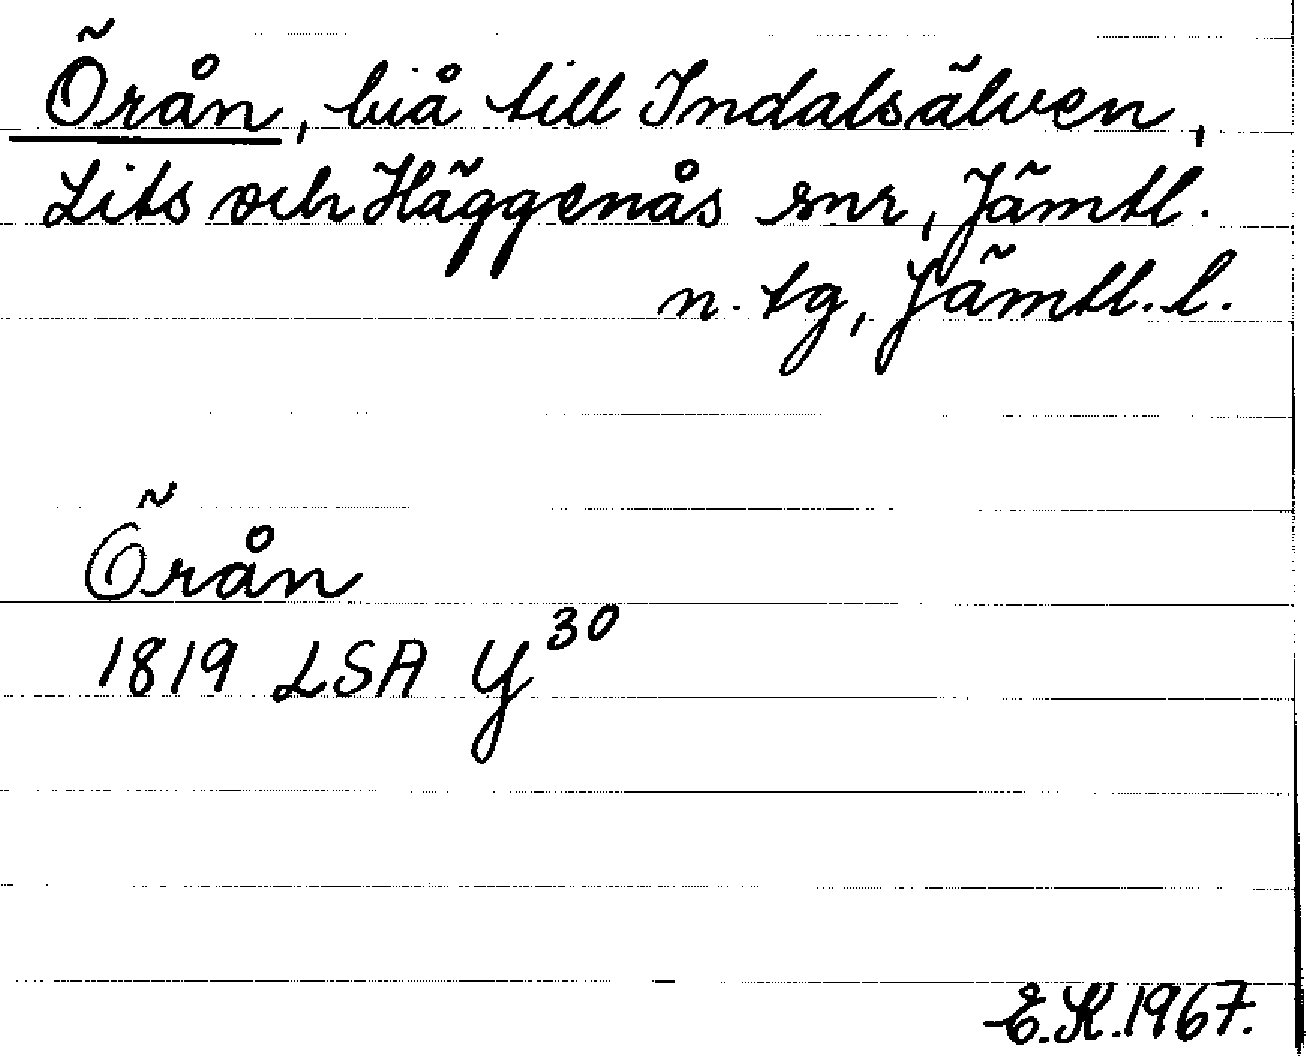 Örån, biå till Indalsälven,
Lits och Häggenås snr, Jämtl.
n. tg, Jämtl. l.
Örån
1819 LSA Y30
E.K. 1967.